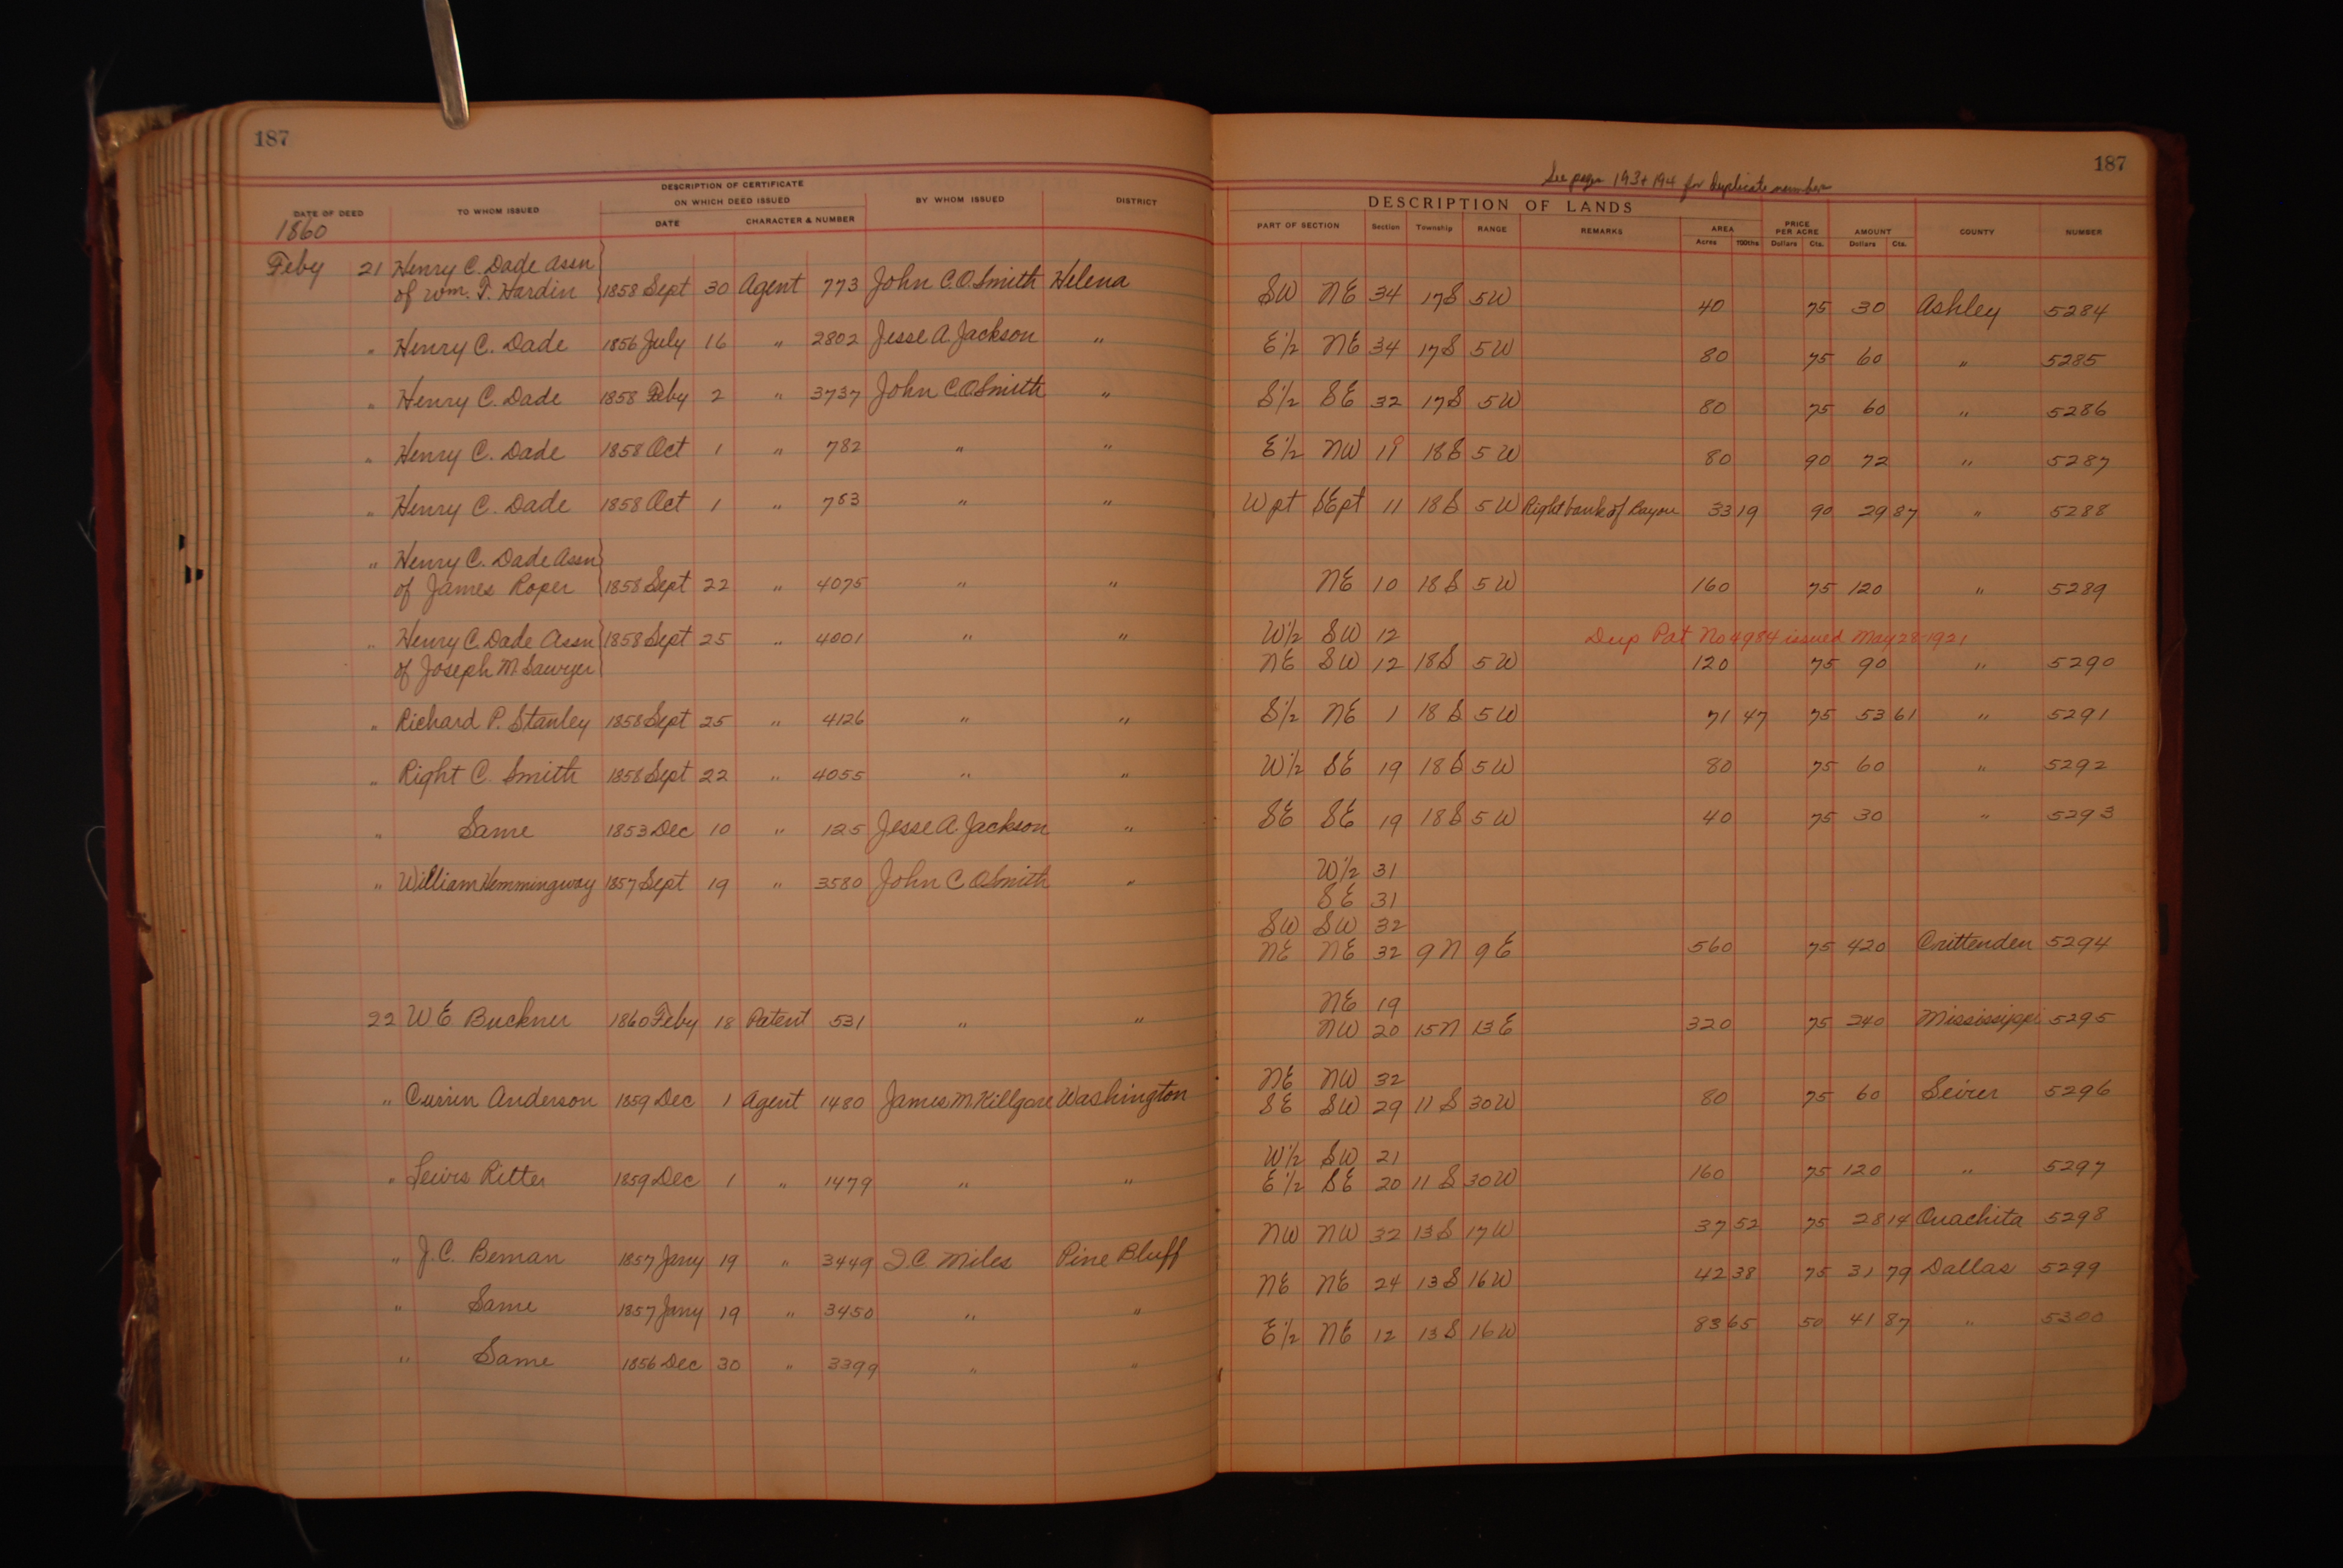 187
DESCRIPTION OF CERTIFICATE
ON WHICH DEED ISSUED
DATE OF DEED TO WHOM ISSUED DATE CHARACTER & NUMBER BY WHOM ISSUED DISTRICT
1860
Feby 21 Henry C. Dade Assn
of Wm. F. Hardin 1858 Sept 30 Agent 773 John C.O. Smith Helena
" Henry C. Dade 1856 July 16 " 2802 Jesse A. Jackson "
" Henry C. Dade 1858 Feby 2 " 3737 John C.O. Smith "
" Henry C. Dade 1858 Oct 1 " 782 " "
" Henry C. Dade 1858 Oct 1 " 783 " "
" Henry C. Dade Assn
of James Roper 1858 Sept 22 " 4075 " "
" Henry C. Dade Assn 1858 Sept 25 " 4001 " "
of Joseph M. Sawyer
" Richard P. Stanley 1858 Sept 25 " 4126 " "
" Right C. Smith 1858 Sept 22 " 4055 " "
" Same 1853 Dec 10 " 125 Jesse A. Jackson "
" William Hemmingway 1857 Sept 19 " 3580 John C O Smith "
22 W E Buckner 1860 Feby 18 Patent 531 " "
" Currin Anderson 1859 Dec 1 Agent 1480 James M Killgore Washington
" Lewis Ritter 1859 Dec 1 " 1479 " "
" J. C. Beman 1857 Jany 19 " 3449 I. C. Miles Pine Bluff
" Same 1857 Jany 19 " 3450 " "
" Same 1856 Dec 30 " 3399 " "
187
See page 193 + 194 for duplicate number
DESCRIPTION OF LANDS
PART OF SECTION Section Township RANGE REMARKS AREA PRICE PER ACRE AMOUNT COUNTY NUMBER
Acres 100ths Dollars Cts. Dollars Cts.
SW NE 34 17S 5W 40 75 30 Ashley 5284
E½ NE 34 17S 5W 80 75 60 " 5285
S½ SE 32 17S 5W 80 75 60 " 5286
E½ NW 19 18S 5W 80 90 72 " 5287
W pt SE pt 11 18S 5W Right bank of Bayou 33 19 90 29 87 " 5288
NE 10 18S 5W 160 75 120 " 5289
W½ SW 12 Dup Pat No 4984 issued May 28-1921
NE SW 12 18S 5W 120 75 90 " 5290
S½ NE 1 18S 5W 71 47 75 53 61 " 5291
W½ SE 19 18S 5W 80 75 60 " 5292
SE SE 19 18S 5W 40 75 30 " 5293
W½ 31
SE 31
SW SW 32
NE NE 32 9N 9E 560 75 420 Crittenden 5294
NE 19
NW 20 15N 13E 320 75 240 Mississippi 5295
NE NW 32
SE SW 29 11S 30W 80 75 60 Seivier 5296
W½ SW 21
E½ SE 20 11S 30W 160 75 120 " 5297
NW NW 32 13S 17W 37 52 75 28 14 Ouachita 5298
NE NE 24 13S 16W 42 38 75 31 79 Dallas 5299
E½ NE 12 13S 16W 83 65 50 41 87 " 5300